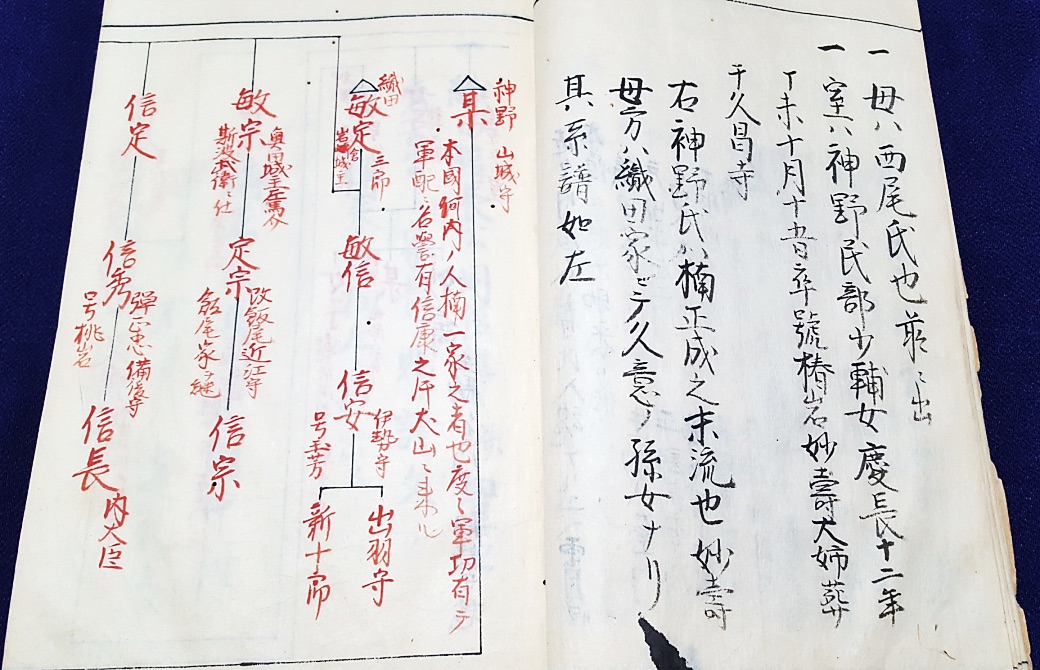 一 母ハ西尾氏也前ニ出
一 室ハ神野民部少輔女慶長十二年
丁未十月十五日卒號椿岩妙壽大姉葬
于久昌寺
右神野氏ハ楠正成之末流也妙壽
母方ハ織田家ニテ久意ノ孫女ナリ
其系譜如左
神野 山城守
某
本國何内ノ人楠一家之者也度々軍功有テ
軍配ニ名譽有信康之所犬山ニ来ル
織田
敏定 三郎
岩倉城主
敏信
信安 伊勢守
号玉芳
出羽守
新十郎
敏宗
奥田城主左馬介
斯波武衛ニ仕
定宗
改飯尾近江守
飯尾家ヲ継
信宗
信定
信秀
弾正忠 備後守
号桃岩
信長 内大臣